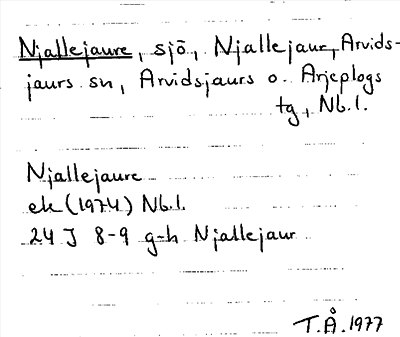 Njallejaure, sjö, Njallejaur, Arvids-
jaurs sn, Arvidsjaurs o. Arjeplogs
tg, Nb.l.
Njallejaure
ek (1974) Nb.l.
24 J 8-9 g-h Njallejaur
T.Å. 1977